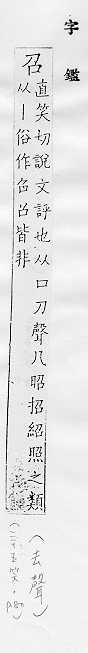 字鑑
召
直笑切說文評也从口刀聲凡昭招紹照之類
从丨俗作㕛㕣皆非
(去聲)
(三十五笑,